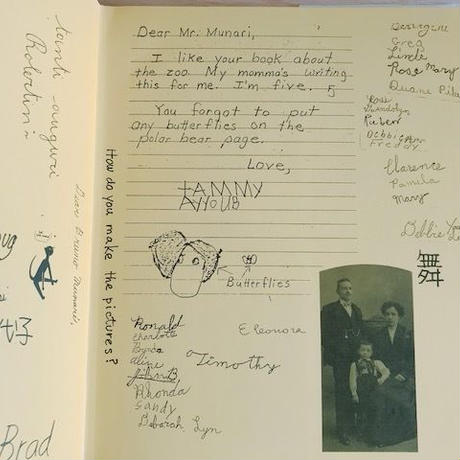 tanti auguri
Robertino
Caro Bruno Munari,
Brad
How do you make the pictures?
Dear Mr. Munari,
I like your book about
the zoo. My momma's writing
this for me. I'm five. 5
You forgot to put
any butterflies on the
polar bear page.
Love,
TAMMY
AYYOUB
Butterflies
Ronald
Charlotte
Aline
Rhonda
Sandy
Deborah Lyn
Eleonora
Timothy
Greg
Linda
Rose Mary
Duane
Gwendolyn
Ruben
Debbie
Freddy
Clarence
Pamela
Mary
Debbie
舞